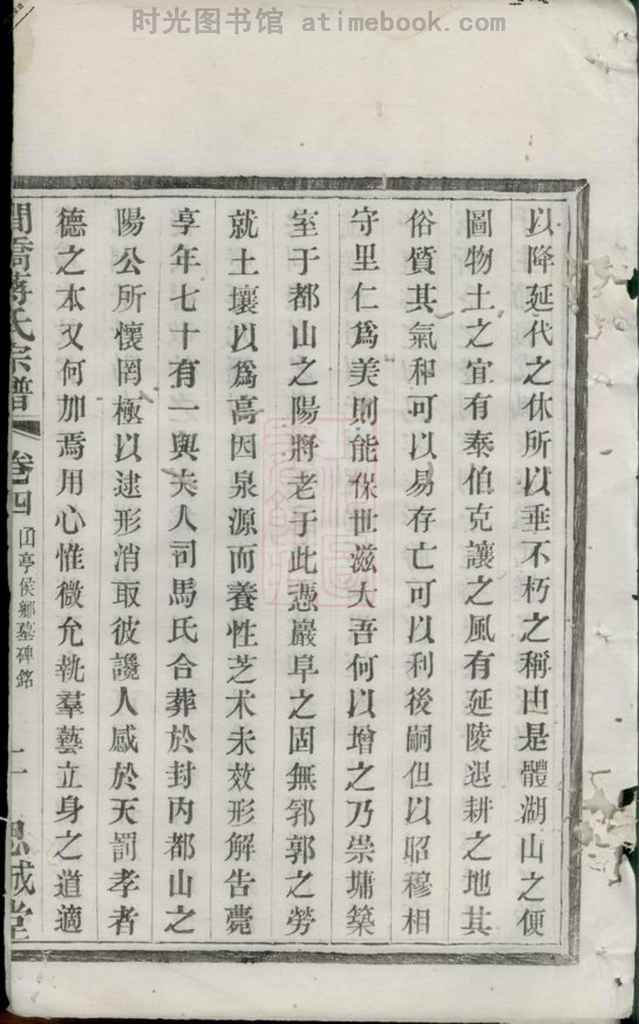 时光图书馆 atimebook.com
以降延代之休所以垂不朽之稱由是體湖山之便
圖物土之宜有泰伯克讓之風有延陵退耕之地其
俗質其氣和可以易存亡可以利後嗣但以昭穆相
守里仁爲美則能保世滋大吾何以增之乃崇墉築
室于都山之陽將老于此憑巖阜之固無郛郭之勞
就土壤以爲高因泉源而養性芝术未效形解告薨
享年七十有一與夫人司馬氏合葬於封内都山之
陽公所懷罔極以逮形消取彼讒人感於天罰孝者
德之本又何加焉用心惟微允執羣藝立身之道適
蔣氏宗譜 卷四 亭侯鄉墓碑銘 二 思誠堂